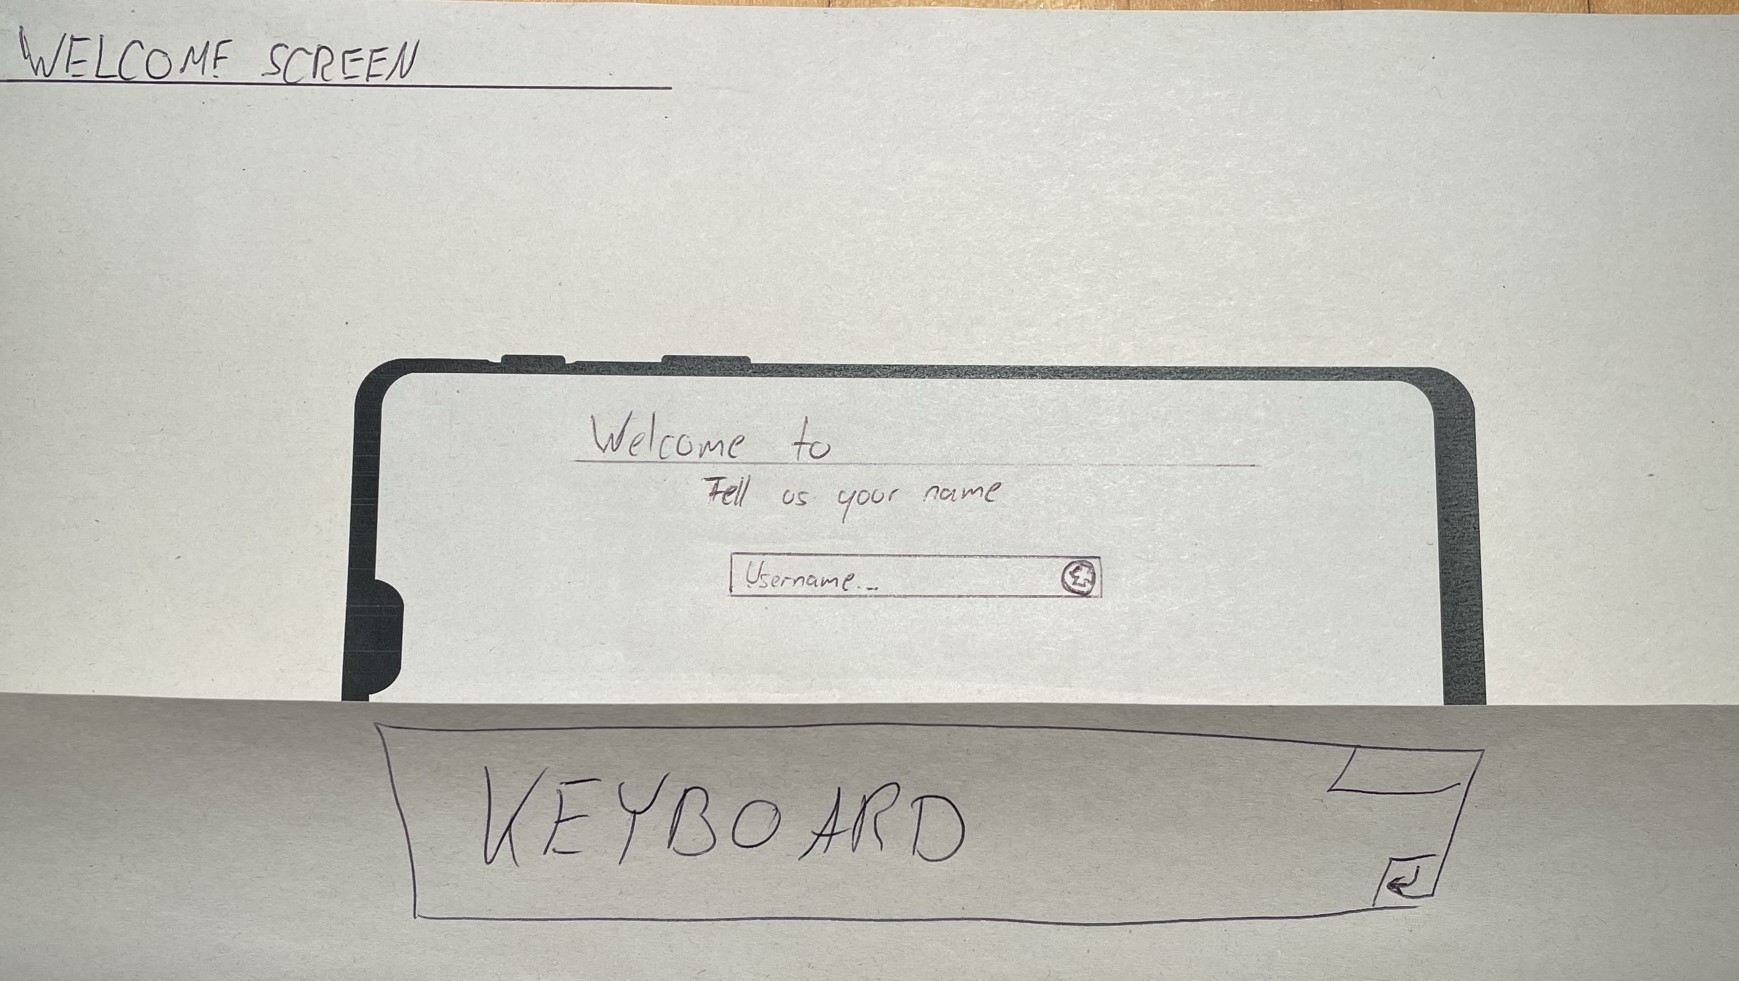 WELCOME SCREEN
Welcome to
Tell us your name
Username...
KEYBOARD